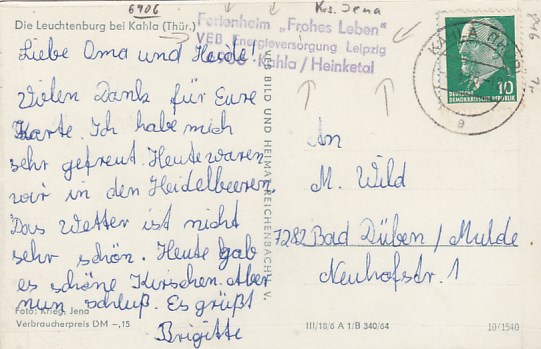 6906
Die Leuchtenburg bei Kahla (Thür.)
Krs. Jena
Ferienheim „Frohes Leben"
VEB Energieversorgung Leipzig
Kahla / Heinketal
Liebe Oma und Heide!
Vielen Dank für Eure
Karte. Ich habe mich
sehr gefreut. Heute waren
wir in den Heidelbeeren.
Das Wetter ist nicht
sehr schön. Heute gab
es schöne Kirschen. Aber
nun schluß. Es grüßt
Brigitte
Foto: Krieg, Jena
Verbraucherpreis DM -,15
VEB BILD UND HEIMAT REICHENBACH I. V.
KAHLA
a
10
DEUTSCHE
DEMOKRATISCHE REPUBLIK
An
M. Wild
7282 Bad Düben / Mulde
Neuhofstr. 1
III/18/6 A 1/B 340/64
10/1540